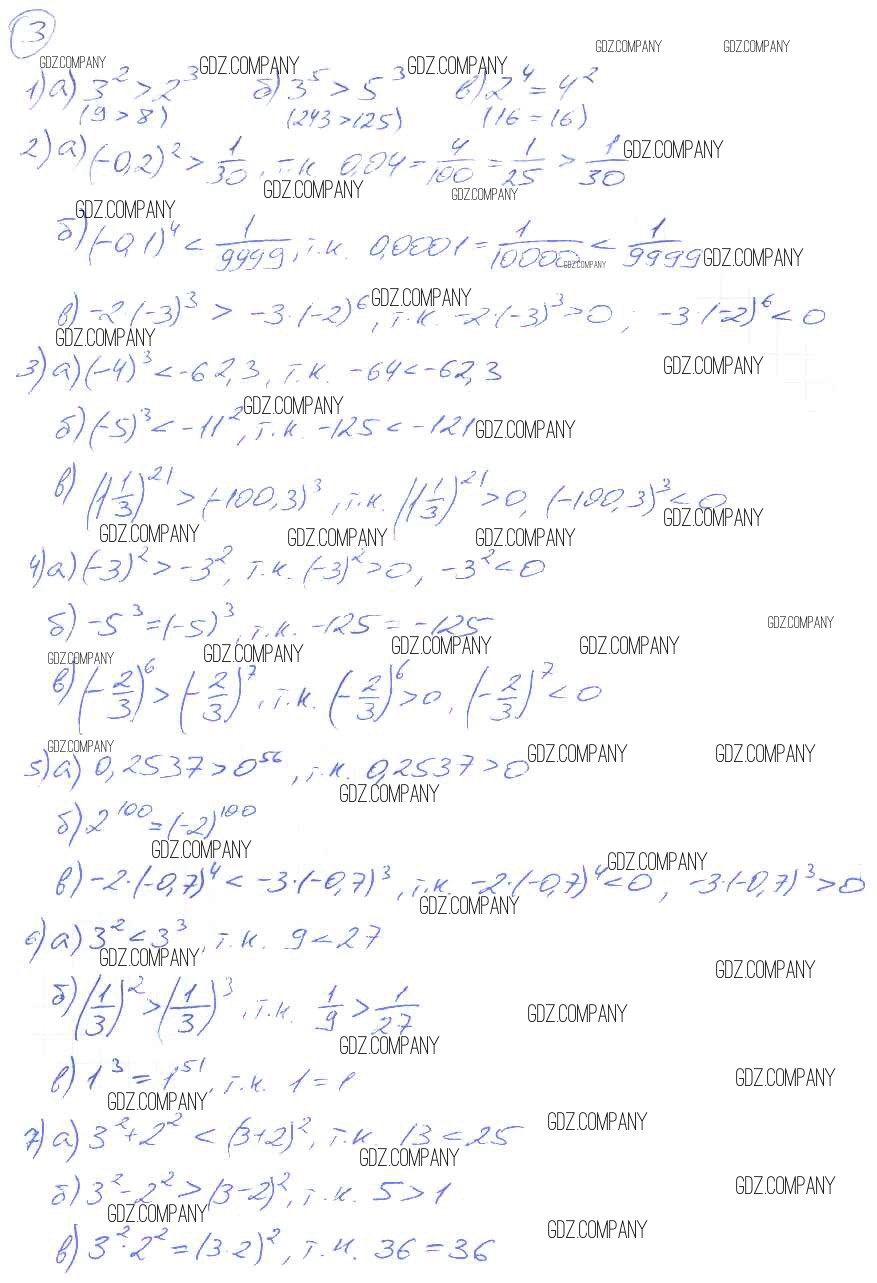 3
GDZ.COMPANY GDZ.COMPANY
GDZ.COMPANY GDZ.COMPANY GDZ.COMPANY
1) а) 3² > 2³ б) 3⁵ > 5³ в) 2⁴ = 4²
(9 > 8) (243 > 125) (16 = 16)
2) а) (-0,2)² > 1/30, т.к. 0,04 = 4/100 = 1/25 > 1/30 GDZ.COMPANY
GDZ.COMPANY GDZ.COMPANY
GDZ.COMPANY
б) (-0,1)⁴ < 1/9999, т.к. 0,0001 = 1/10000 < 1/9999 GDZ.COMPANY
GDZ.COMPANY
GDZ.COMPANY
в) -2·(-3)³ > -3·(-2)⁶, т.к. -2·(-3)³ > 0; -3·(-2)⁶ < 0
GDZ.COMPANY
3) а) (-4)³ < -62,3, т.к. -64 < -62,3 GDZ.COMPANY
GDZ.COMPANY
б) (-5)³ < -11², т.к. -125 < -121 GDZ.COMPANY
в) (1 1/3)²¹ > (-100,3)³, т.к. (1 1/3)²¹ > 0, (-100,3)³ < 0
GDZ.COMPANY
GDZ.COMPANY GDZ.COMPANY GDZ.COMPANY
4) а) (-3)² > -3², т.к. (-3)² > 0, -3² < 0
б) -5³ = (-5)³, т.к. -125 = -125 GDZ.COMPANY
GDZ.COMPANY GDZ.COMPANY GDZ.COMPANY GDZ.COMPANY
в) (-2/3)⁶ > (-2/3)⁷, т.к. (-2/3)⁶ > 0, (-2/3)⁷ < 0
GDZ.COMPANY GDZ.COMPANY GDZ.COMPANY
5) а) 0,2537 > 0⁵⁶, т.к. 0,2537 > 0
GDZ.COMPANY
б) 2¹⁰⁰ = (-2)¹⁰⁰
GDZ.COMPANY GDZ.COMPANY
в) -2·(-0,7)⁴ < -3·(-0,7)³, т.к. -2·(-0,7)⁴ < 0, -3·(-0,7)³ > 0
GDZ.COMPANY
6) а) 3² < 3³, т.к. 9 < 27
GDZ.COMPANY GDZ.COMPANY
б) (1/3)² > (1/3)³, т.к. 1/9 > 1/27 GDZ.COMPANY
GDZ.COMPANY
в) 1³ = 1⁵¹, т.к. 1 = 1 GDZ.COMPANY
GDZ.COMPANY
7) а) 3² + 2² < (3+2)², т.к. 13 < 25 GDZ.COMPANY
GDZ.COMPANY
б) 3² - 2² > (3-2)², т.к. 5 > 1 GDZ.COMPANY
GDZ.COMPANY GDZ.COMPANY
в) 3²·2² = (3·2)², т.к. 36 = 36